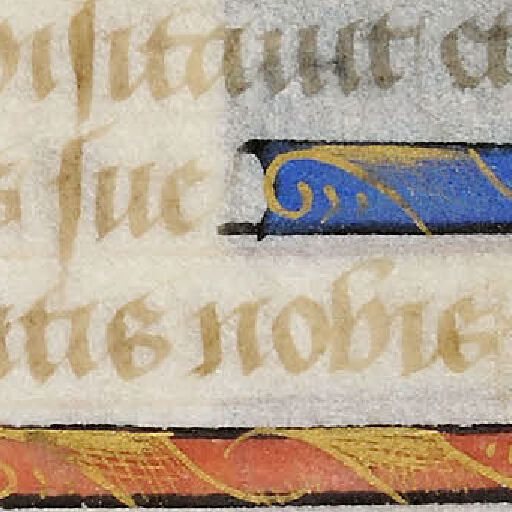 visitauit et
s sue
ntis nobis